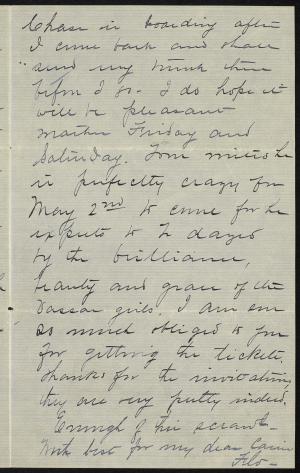 Chase is boarding after
I come back and shall
send my trunk there
before I go. I do hope it
will be pleasant
weather Friday and
Saturday. Tom writes he
is perfectly crazy for
May 2nd to come for he
expects to be dazed
by the brilliance,
beauty and grace of the
Vassar girls. I am ever
so much obliged to you
for getting the tickets.
Thanks for the invitations,
they are very pretty indeed.
Enough of this scrawl.
With best for my dear
Flo-